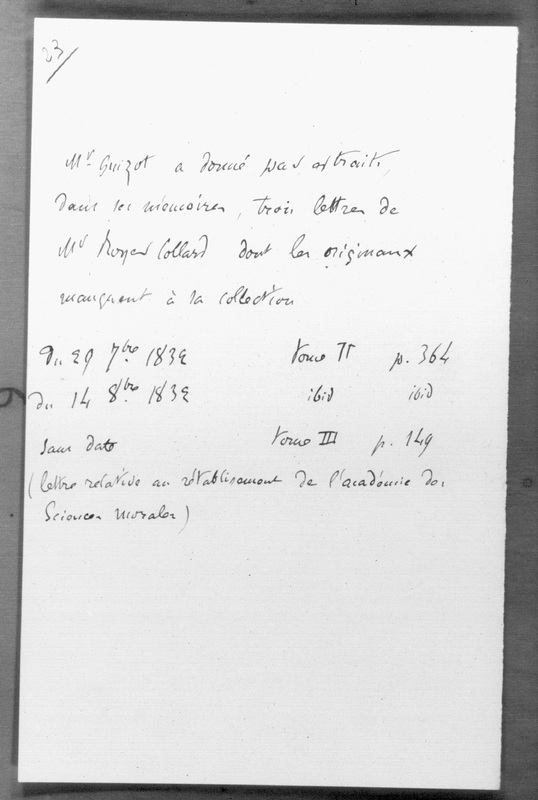 23/
Mr Guizot a donné par extraits,
dans ses mémoires, trois lettres de
Mr Royer Collard dont les originaux
manquent à sa collection
Du 29 7bre 1832 tome II p. 364
du 14 8bre 1832 ibid ibid
Sans date tome III p. 149
(lettre relative au rétablissement de l'académie des
Sciences morales)